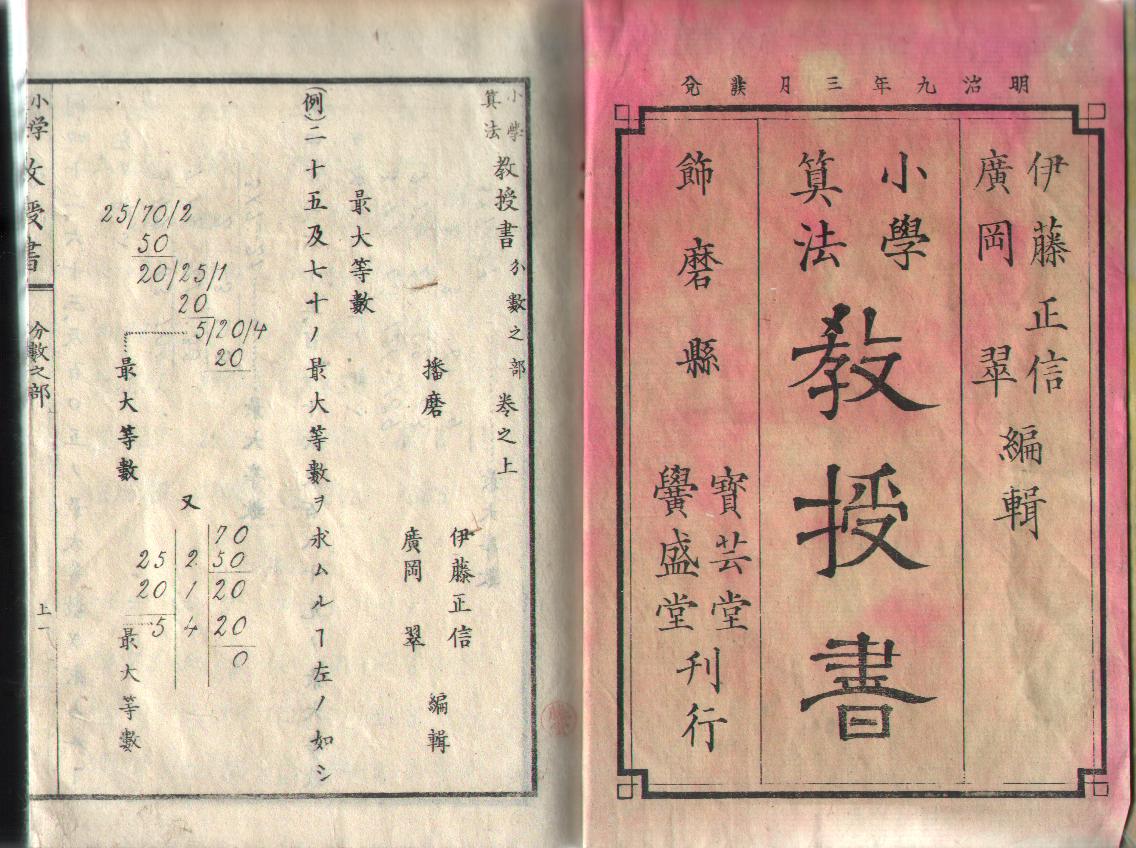 明治九年三月發兌
伊藤正信
廣岡翠
編輯
小學
算法
教授書
飾磨縣
寶芸堂
黌盛堂
刊行
小學
算法
教授書
分數之部
卷之上
播磨
伊藤正信
廣岡翠
編輯
最大等數
(例)二十五及七十ノ最大等數ヲ求ムルヿ左ノ如シ
25/70/2
50
20/25/1
20
5/20/4
20
最大等數
又
70
25 2 50
20 1 20
5 4 20
0
最大等數
小学教授書
分數之部
上一